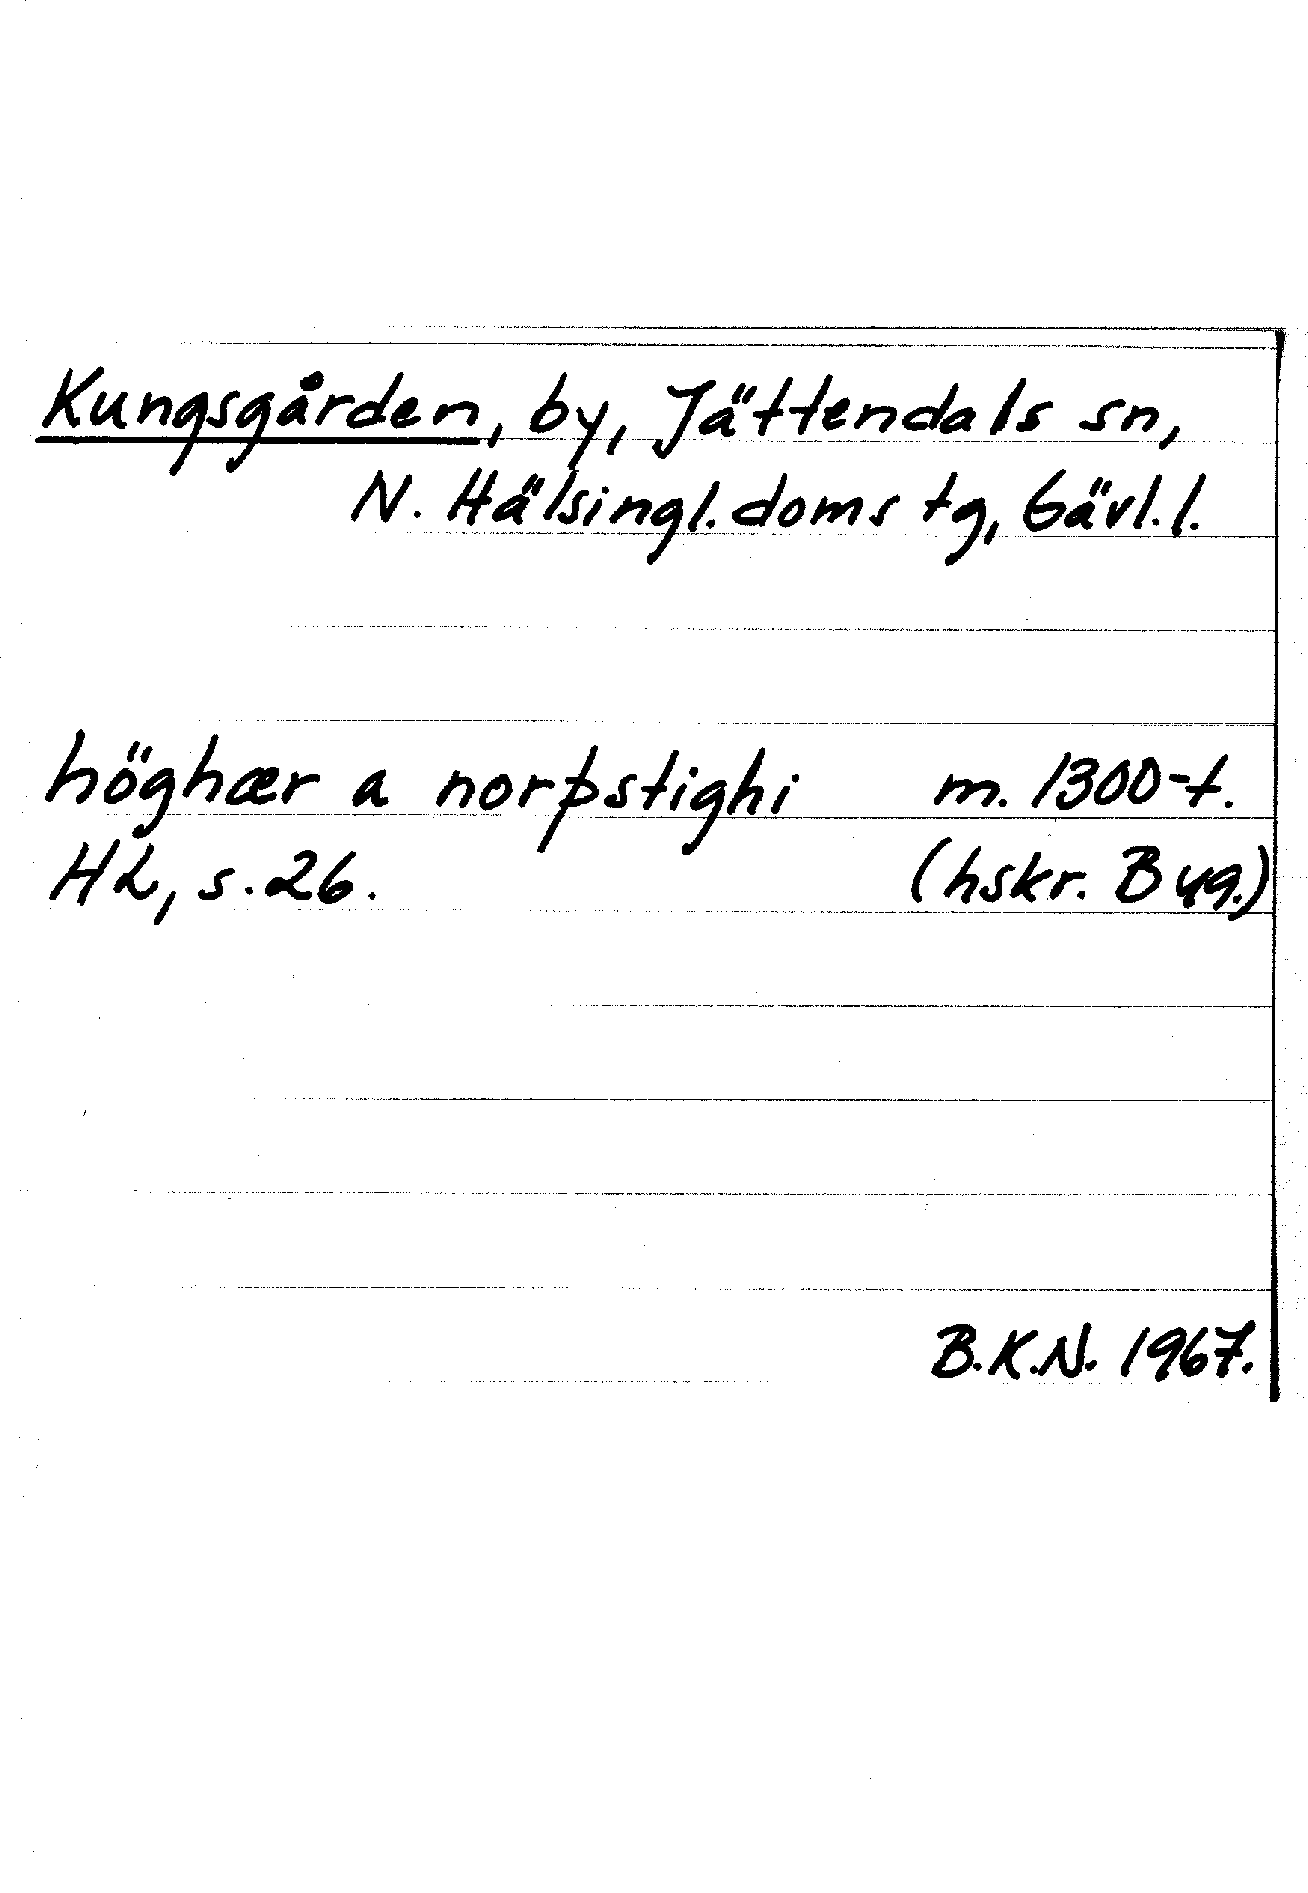 Kungsgården, by, Jättendals sn,
N. Hälsingl. doms tg, Gävl. l.
höghær a norþstighi m. 1300-t.
HL, s. 26. (hskr. B 49.)
B.K.N. 1967.